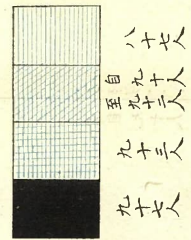 八十七人
自九十人
至九十二人
九十三人
九十七人